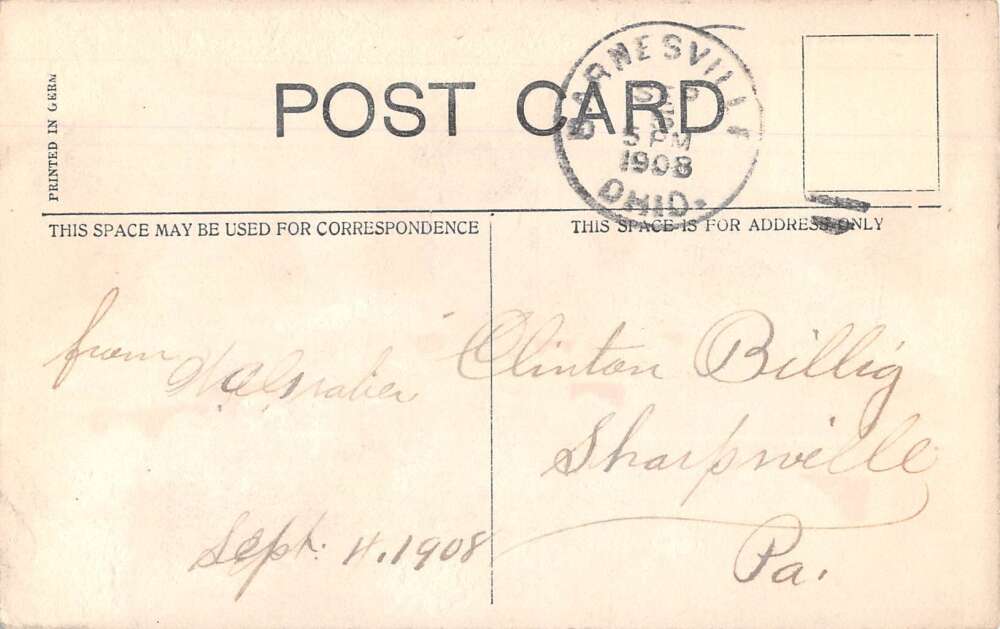 PRINTED IN GERM
POST CARD
BARNESVILLE
SEP
5 PM
1908
OHIO.
THIS SPACE MAY BE USED FOR CORRESPONDENCE
THIS SPACE IS FOR ADDRESS ONLY
from
Sept. 4. 1908
Clinton Billig
Sharpsville
Pa.